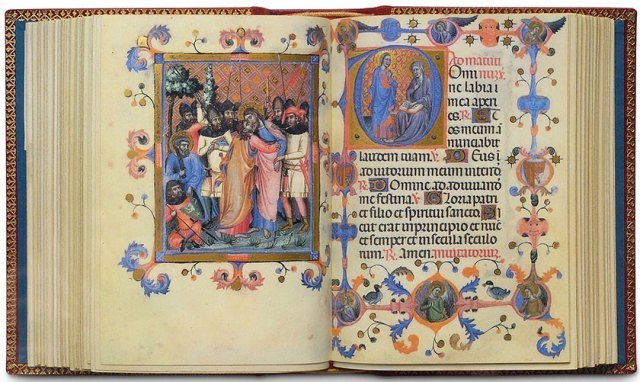 Ad matuti
Omi nuʒ ℣
ne labia
mea aperi
es. ℟. Et
os meum
laudem tuam. ℣. Deus
adiutorium meum intende
℟. Domine ad
me festina. ℣. Gloria patri
et filio et spiritui sancto. Si
cut erat in principio et nūc
et semper et in secula seculo
rum. ℟. Amen.